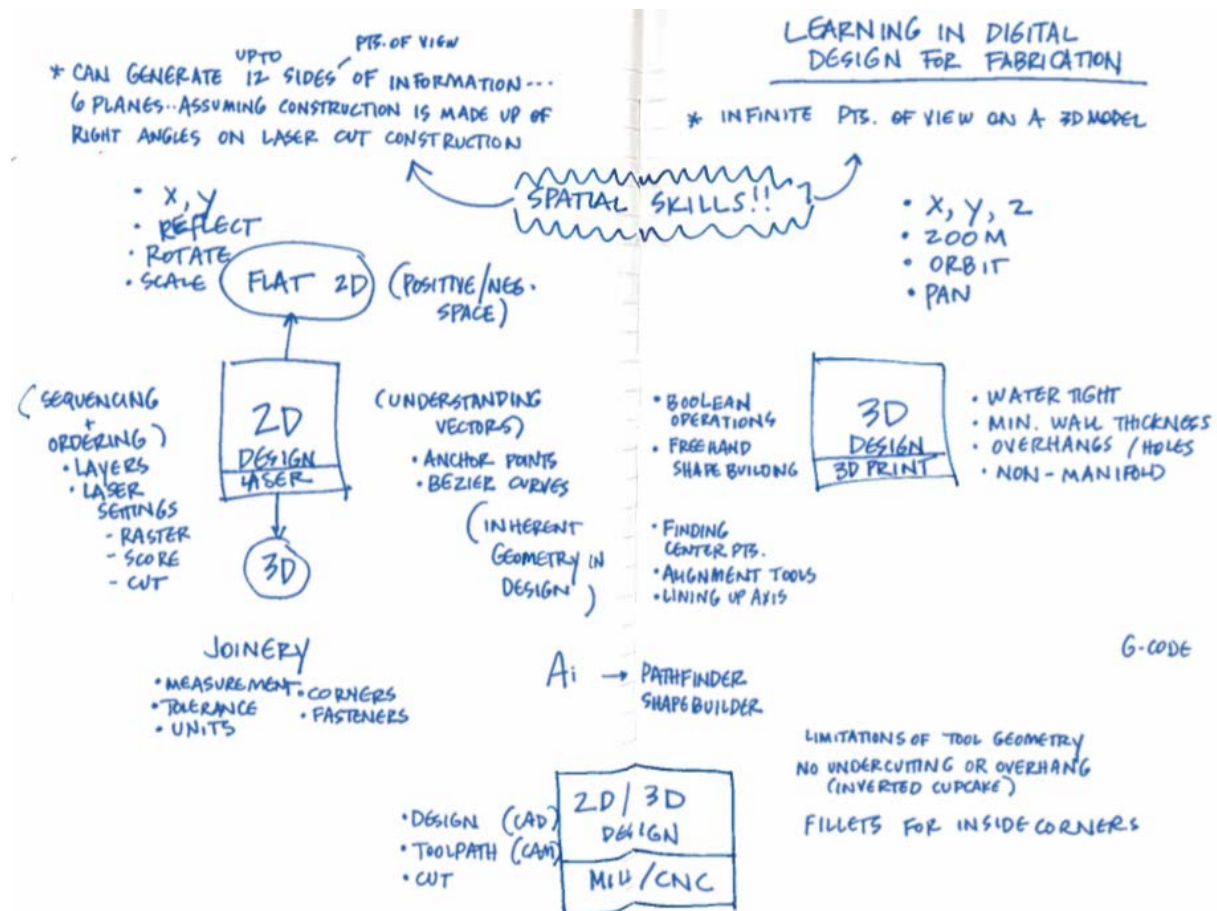 LEARNING IN DIGITAL
DESIGN FOR FABRICATION
UP TO PTS. OF VIEW
* CAN GENERATE 12 SIDES OF INFORMATION...
6 PLANES.. ASSUMING CONSTRUCTION IS MADE UP OF
RIGHT ANGLES ON LASER CUT CONSTRUCTION
* INFINITE PTS. OF VIEW ON A 3D MODEL
SPATIAL SKILLS!!
• X, Y
• REFLECT
• ROTATE
• SCALE
FLAT 2D
(POSITIVE/NEG.
SPACE)
• X, Y, Z
• ZOOM
• ORBIT
• PAN
(SEQUENCING
+
ORDERING)
• LAYERS
• LASER
SETTINGS
- RASTER
- SCORE
- CUT
2D
DESIGN
LASER
3D
(UNDERSTANDING
VECTORS)
• ANCHOR POINTS
• BEZIER CURVES
(INHERENT
GEOMETRY IN
DESIGN)
• BOOLEAN
OPERATIONS
• FREEHAND
SHAPE BUILDING
• FINDING
CENTER PTS.
• ALIGNMENT TOOLS
• LINING UP AXIS
3D
DESIGN
3D PRINT
• WATER TIGHT
• MIN. WALL THICKNESS
• OVERHANGS / HOLES
• NON-MANIFOLD
JOINERY
• MEASUREMENT
• TOLERANCE
• UNITS
• CORNERS
• FASTENERS
Ai → PATHFINDER
SHAPEBUILDER
G-CODE
• DESIGN (CAD)
• TOOLPATH (CAM)
• CUT
2D/3D
DESIGN
MILL/CNC
LIMITATIONS OF TOOL GEOMETRY
NO UNDERCUTTING OR OVERHANG
(INVERTED CUPCAKE)
FILLETS FOR INSIDE CORNERS